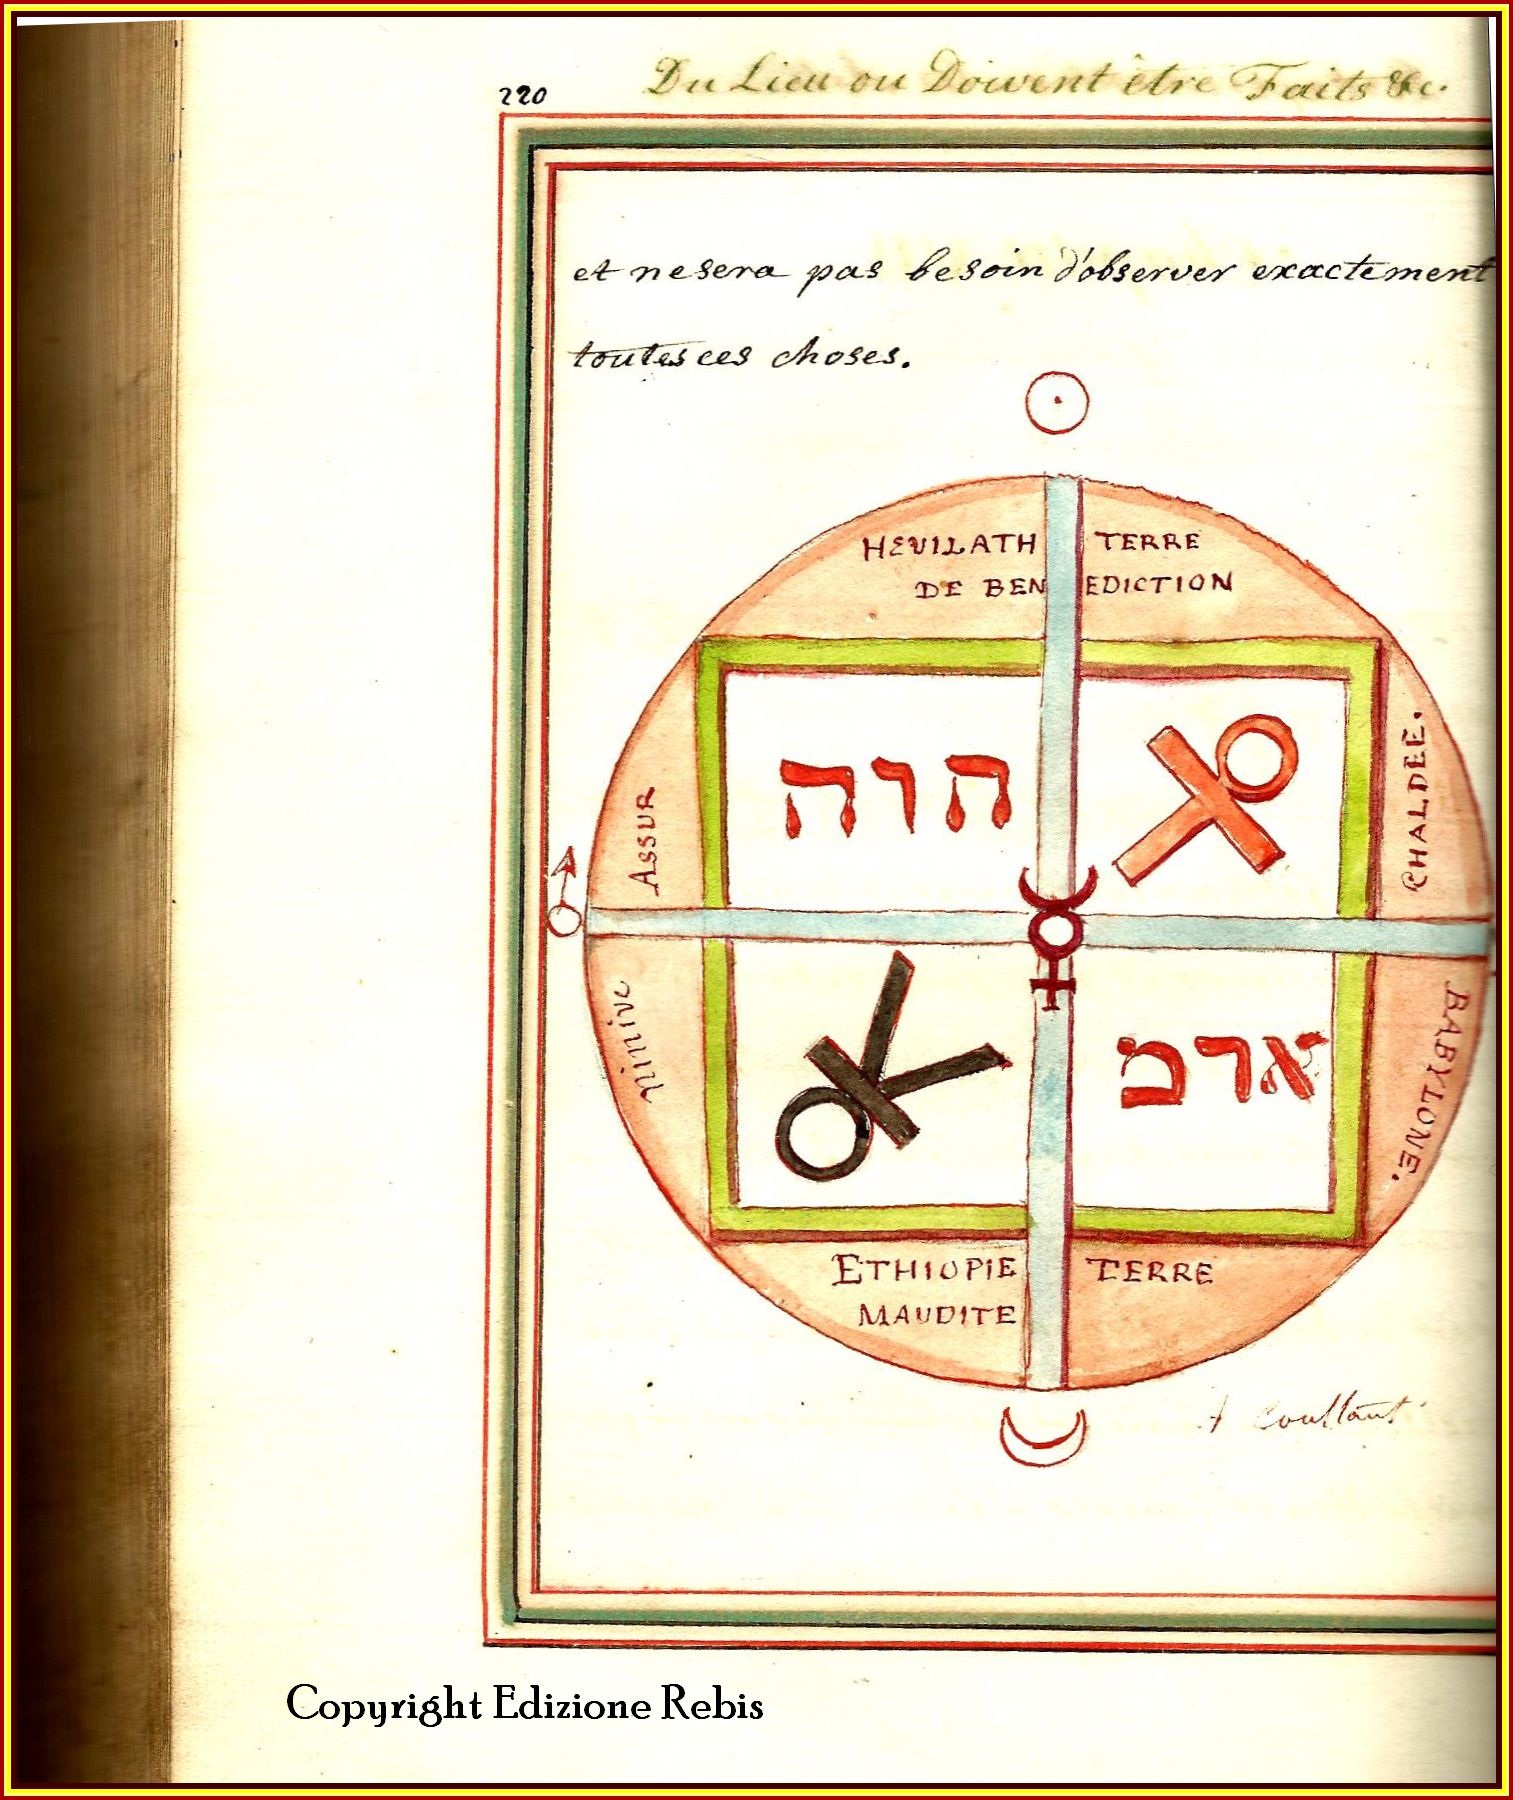 220
Du Lieu ou Doivent être Faits &c.
et ne sera pas besoin d'observer exactement
toutes ces choses.
HEVILATH TERRE
DE BENEDICTION
ASSUR
CHALDÉE.
הוה
ארמ
ninive
BABYLONE.
ETHIOPIE TERRE
MAUDITE
A Constant
Copyright Edizione Rebis